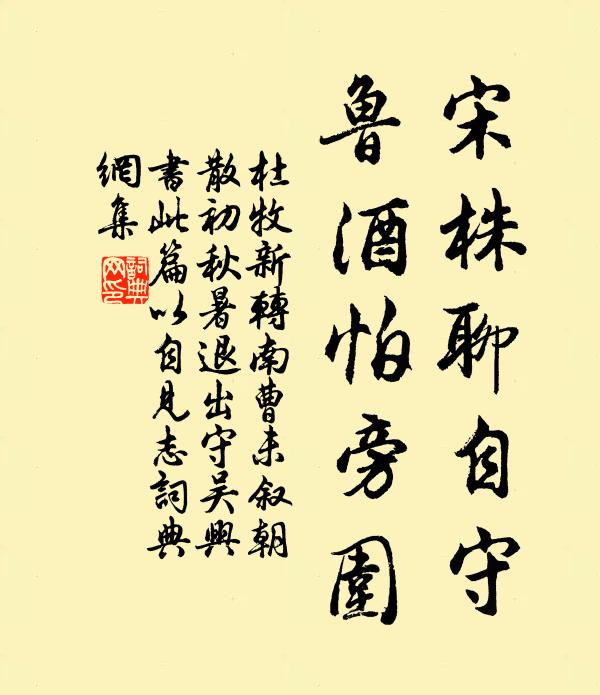 宋株聊自守
魯酒怕旁圍
杜牧新轉南曹未叙朝
散初秋暑退出守吴興
書此篇以自見志詞典
網集
詞典
网